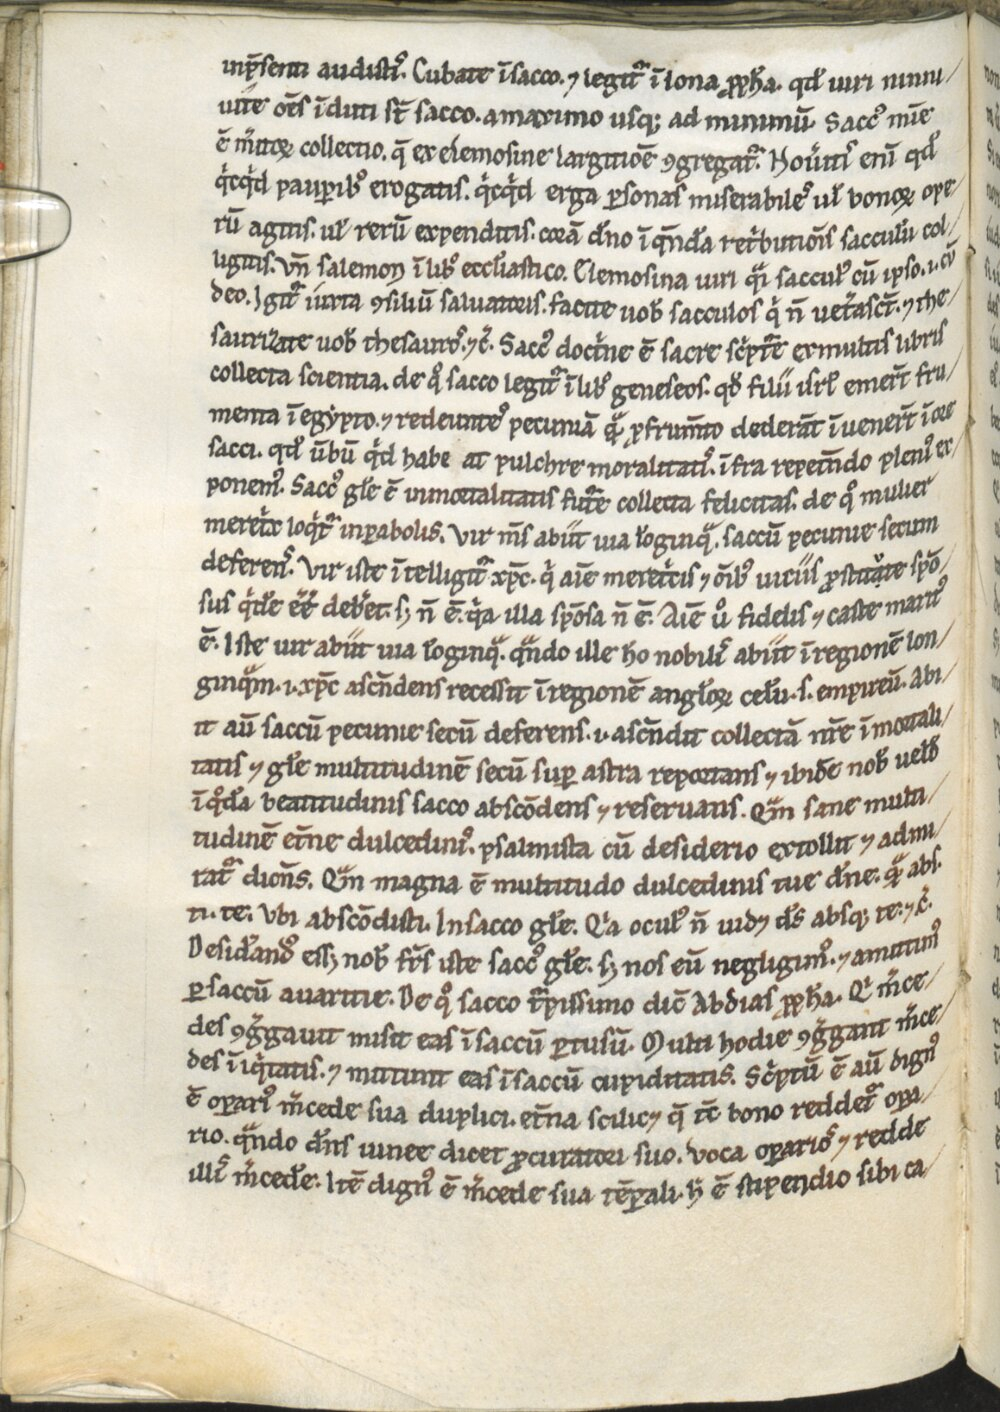 inp̄senti audistꝭ. Cubate ī sacco. ⁊ legitᷣ ī Iona ꝓph̄a. qd̛ uiri niniui
uite oēs īduti st̄ sacco. a maximo usq; ad minimū. Saccꝰ mīe
ē m̄itoꝝ collectio. q̄ ex elemosine largitiōe ꝯgregatᷣ. Nouitis enī qd̛
q̇cq̇d pauꝑibꝰ erogatis. q̇cq̇d erga ꝑsonas miserabiles ul̛ bonoꝝ ope
rū agitis. ul̛ rerū expenditis. corā dn̄o ī q̄nd̛a ret̛butiōis sacculū col
ligitis. Vn̄ salemon ī lib̛ ecclīastico. Elemosina uiri qᷓi saccul̛ cū ipso .i. cū
deo. Igitᷣ iuxta ꝯsiliū saluatoris. facite uob̛ sacculos q̇ n̄ uet̛asct̄. ⁊ the
saurizate uob̛ thesauros. ⁊c̄. Saccꝰ doct̛ne ē sacre sc̛pt̛e ex multis libris
collecta scientia. de qͦ sacco legitᷣ ī lib̛ geneseos. qd̛ filii isrl̛ emer̄t fru
menta ī egypto. ⁊ redeuntes pecuniā qᷓ ꝓ frum̄to dederāt īuener̄t ī ore
sacci. qd̛ ūbū q̇d habeat pulchre moralitatis. īfra repetendo pleniꝰ ex
ponemꝰ. Saccꝰ gl̛e ē inmortalitatis fut̛e collecta felicitas. de qͦ mulier
meret̛x loq̇tᷣ in ꝑabolis. Vir m̄s abiit uia lōginqᷓ. saccū pecunie secum
deferens. Vir iste ītelligitᷣ xp̄c. q̇ aīe meret̛cis ⁊ ōib̛ uiciis ꝓstitute spō
sus q̇d̛e ēē deb̛et. s; n̄ ē. q̇a illa spōsa n̄ ē. Aīe u̇ͦ fidelis ⁊ caste maritꝰ
ē. Iste uir abiit uia lōginqᷓ. qᷓndo ille ho nobilis abiit ī regionē lon
ginqᷓm .i. xp̄c ascn̄dens recessit ī regionē angl̛oꝝ celū .s. empireū. Abi
it aū saccū pecunie secū deferens .i. ascn̄dit collectā nr̄e īmortali
tatis ⁊ gl̛e multitudinē secū suꝑ astra reportans ⁊ ibid̛e nob̛ uelud̛
ī qͦd̛a beatitudinis sacco abscōdens ⁊ reseruans. Qᷓm sane multi
tudinē et̄ne dulcedinis. psalmista cū desiderio extollit ⁊ admi
ratᷣ dicn̄s. Qᷓm magna ē multitudo dulcedinis tue dn̄e. qᷓ abs.
ti. te. Vbi abscōdisti. In sacco gl̛e. Q̇a ocul̛ n̄ uidꝫ ds̄ absq; te. ⁊c̄.
Desid̛andꝰ ess; nob̛ fr̄s iste saccꝰ gl̛e. s; nos eū negligimꝰ. ⁊ amittimꝰ
ꝑ saccū auaritie. De qͦ sacco t̄pissimo dic̄ Abdias ꝓph̄a. Q̇ m̄ce
des ꝯg̛gauit misit eas ī saccū ꝑtusū. Multi hodie ꝯg̛gant m̄ce
des īiq̇tatis. ⁊ mittunt eas ī saccū cupiditatis. Sc̛ptū ē aū dignꝰ
ē oꝑariꝰ m̄cede sua duplici. et̄na scilicꝫ q̄ tc̄ bono reddetᷣ oꝑa
rio. qᷓndo dn̄s uinee dicet ꝓcuratori suo. Voca oꝑarios ⁊ redde
ill̛ m̄ced̛e. Itē dignꝰ ē m̄cede sua tēꝑali. h̄ ē stipendio sibi ca